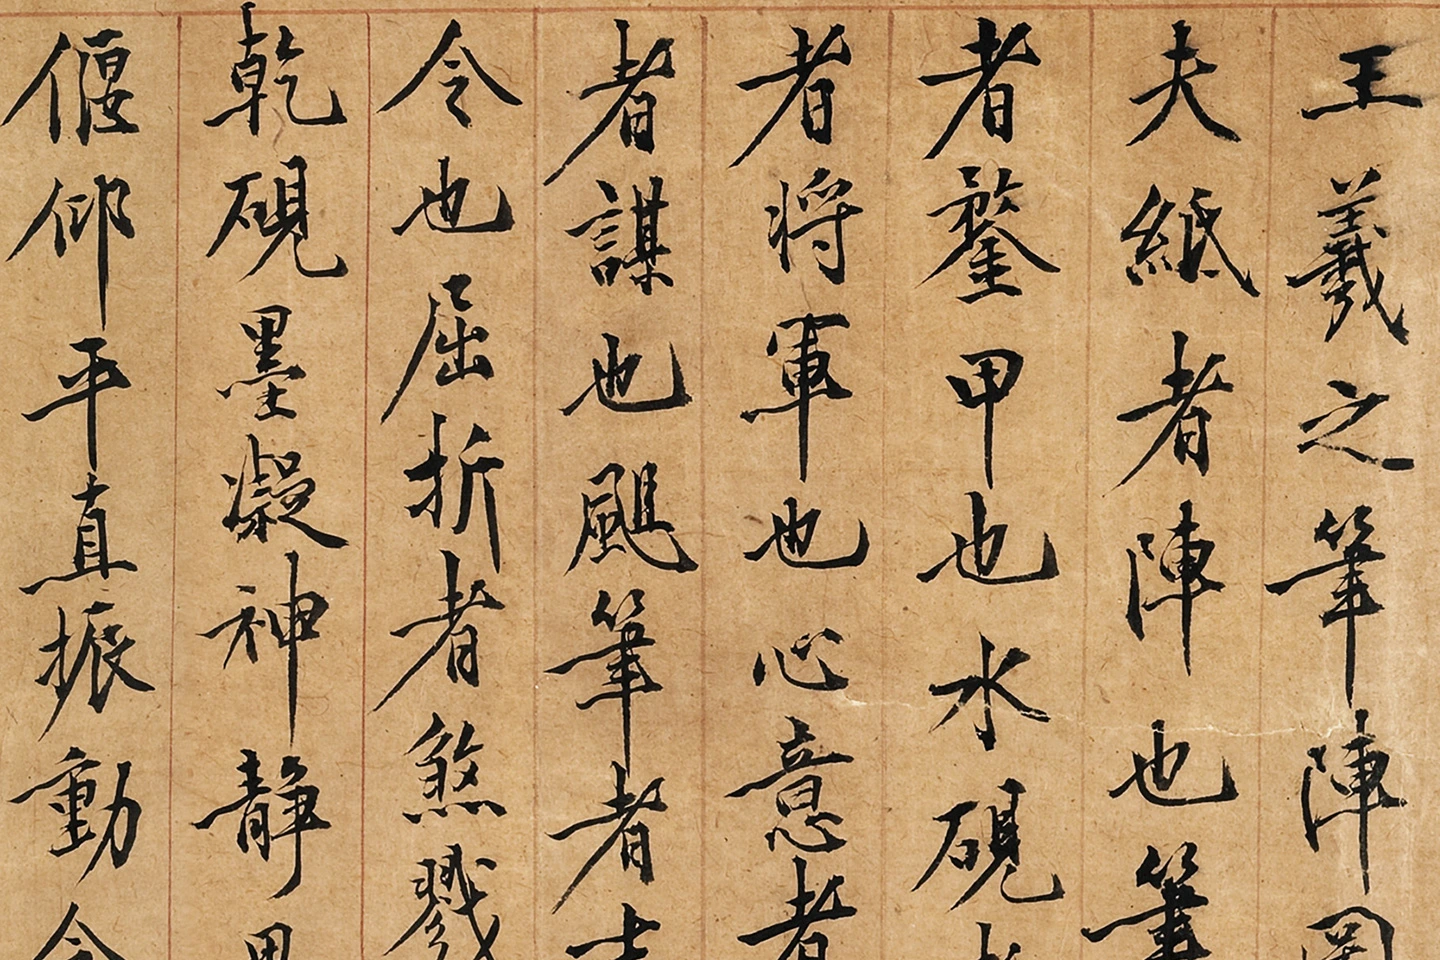 王羲之筆陣圖
夫紙者陣也筆
者鍪甲也水硯者
者将軍也心意者
者謀也颺筆者吉
令也屈折者煞戮
乾硯墨凝神靜思
偃仰平直振動令